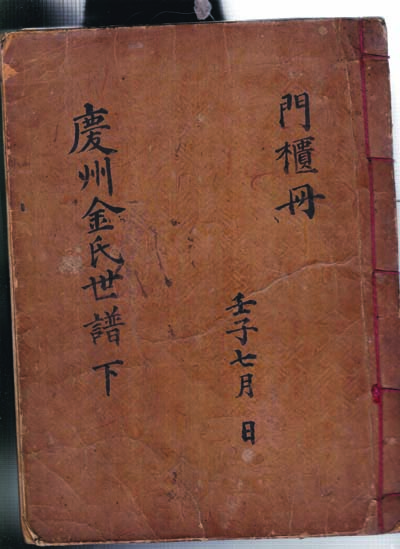 門櫃冊
壬子七月 日
慶州金氏世譜 下